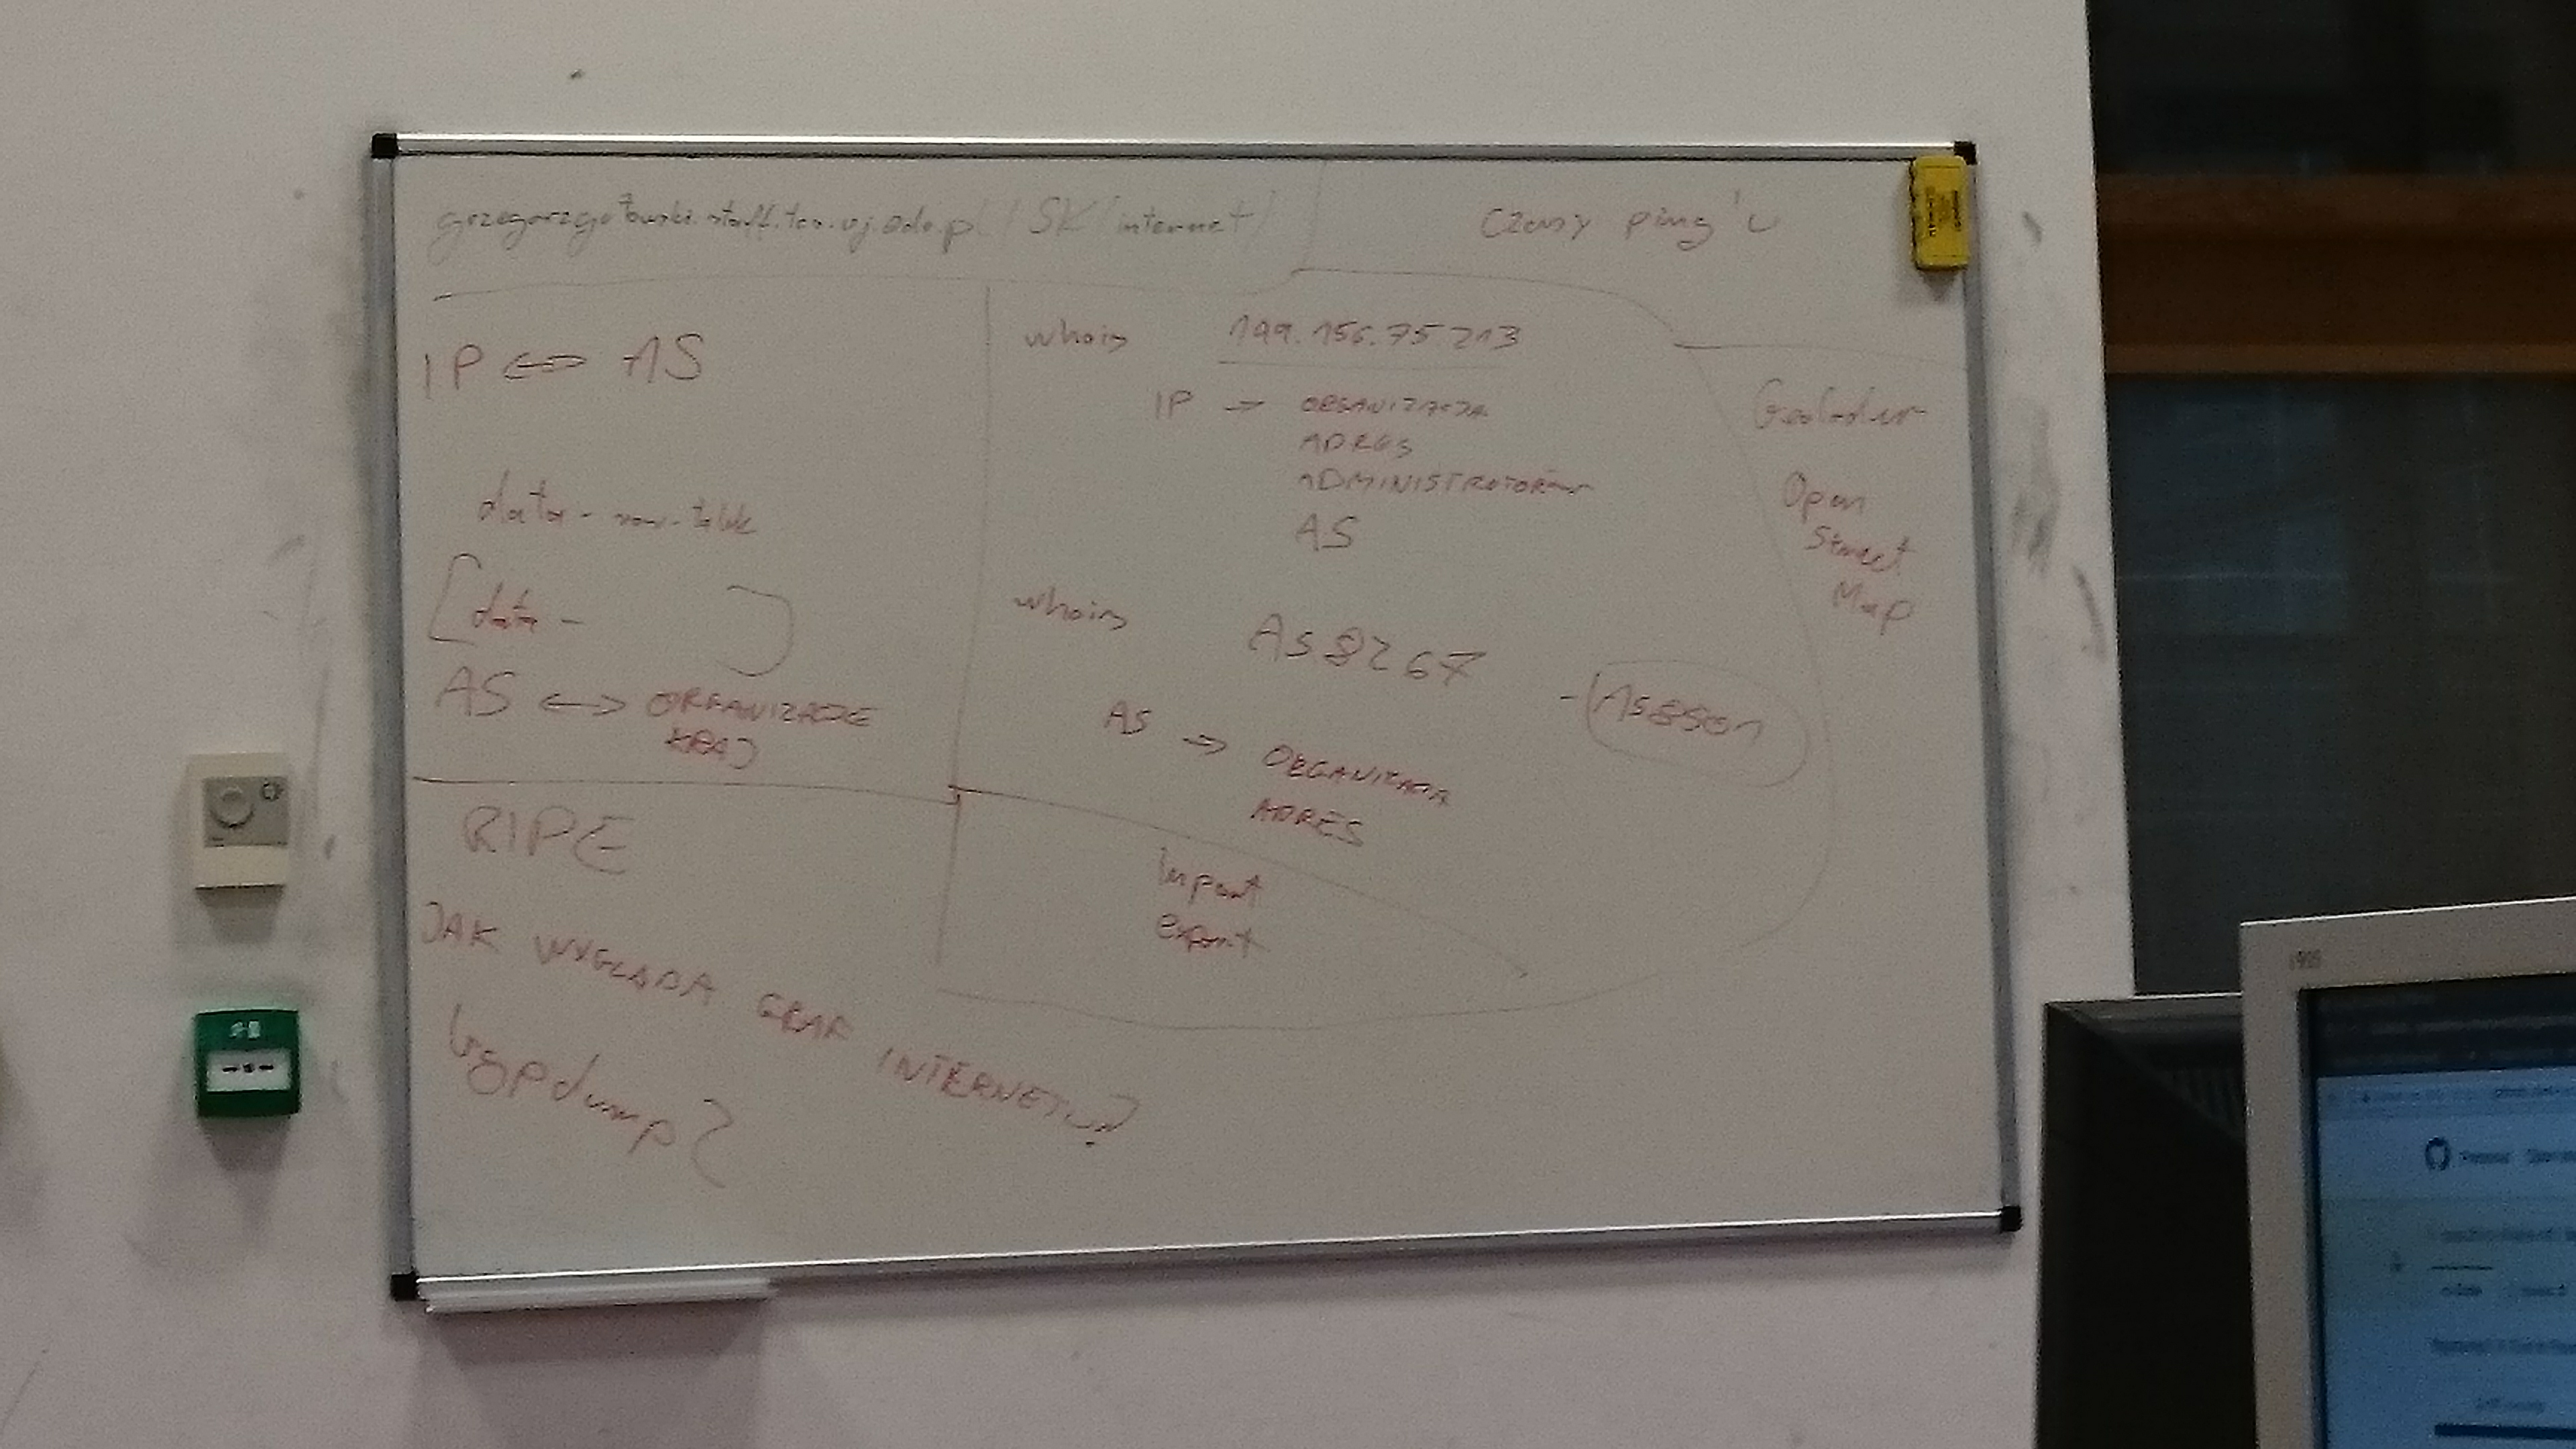 grzegorzgutowski.staff.tcs.uj.edu.pl/SK/internet/
Czasy ping'u
IP <-> AS
data-raw-table
[data - ]
AS <-> ORGANIZACJE
KRAJ
whois 149.156.75.213
IP -> ORGANIZACJA
ADRES
ADMINISTRATORÓW
AS
whois AS8267
- AS8501
AS -> ORGANIZACJA
ADRES
import
export
Open
Street
Map
RIPE
JAK WYGLĄDA GRAF INTERNETU?
bgpdump?